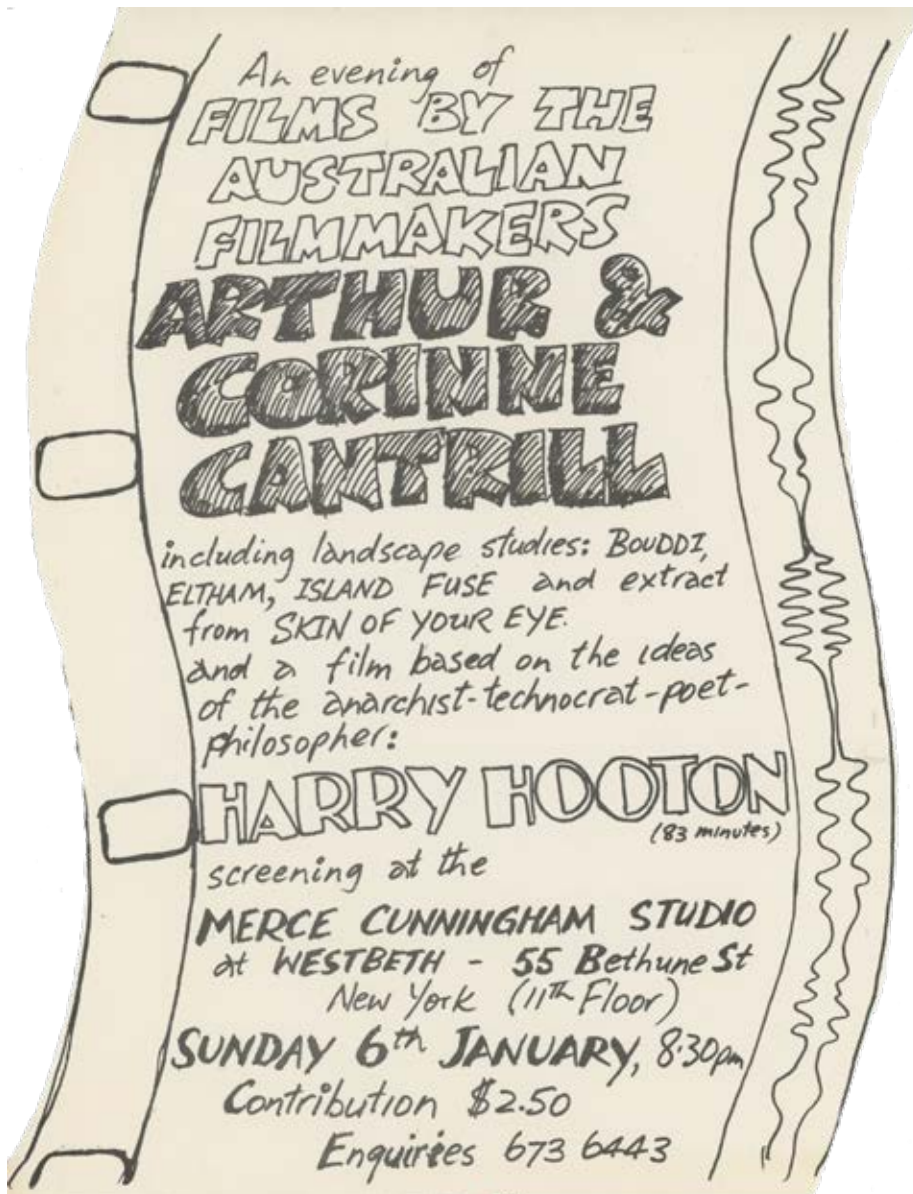 An evening of
FILMS BY THE
AUSTRALIAN
FILMMAKERS
ARTHUR &
CORINNE
CANTRILL
including landscape studies: BOUDDI,
ELTHAM, ISLAND FUSE and extract
from SKIN OF YOUR EYE.
and a film based on the ideas
of the anarchist-technocrat-poet-
philosopher:
HARRY HOOTON
(83 minutes)
screening at the
MERCE CUNNINGHAM STUDIO
at WESTBETH - 55 Bethune St
New York (11th Floor)
SUNDAY 6th JANUARY, 8·30pm
Contribution $2.50
Enquiries 673 6443